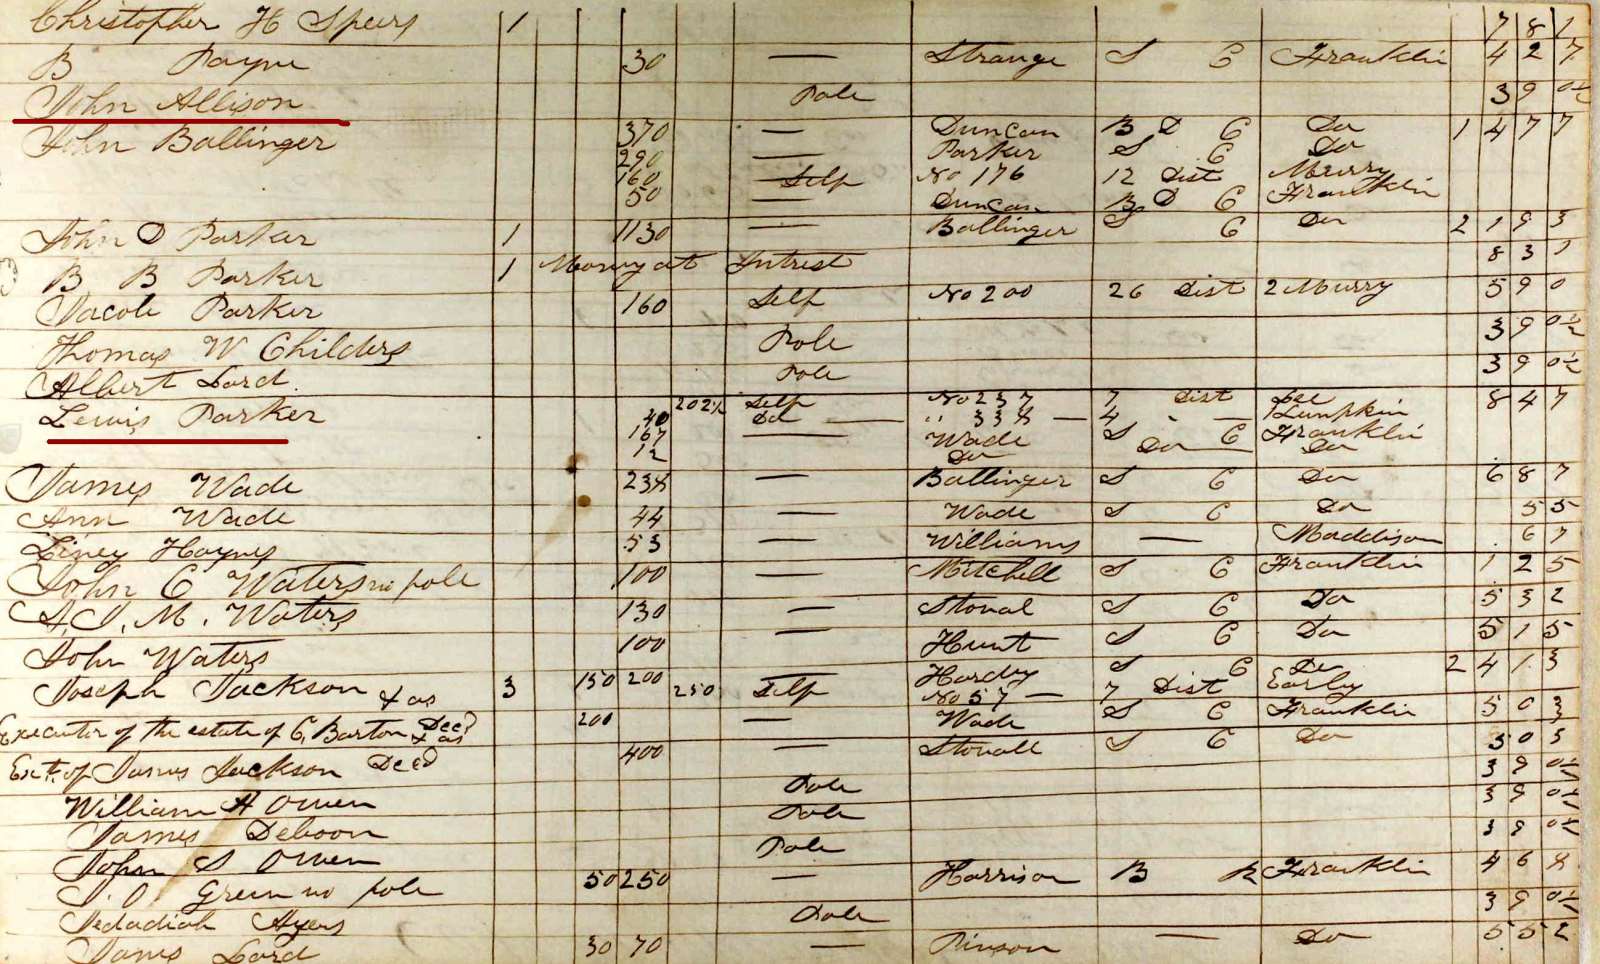 Christopher H Spears 1 7 8 1
B Payne 30 — Strange S C Franklin 4 2 7
John Allison Pole 3 9 0½
John Ballinger 370 — Duncan B D C Do 1 4 7 7
290 — Parker S C Do
160 Self No 176 12 Dist Murry
50 — Duncan B D C Franklin
John D Parker 1 1130 — Ballinger S C Do 2 1 9 3
B B Parker 1 Mony at Intrest 8 3 1
Jacob Parker 160 Self No 200 26 Dist 2 Murry 5 9 0
Thomas W Childers Pole 3 9 0½
Albert Lord Pole 3 9 0½
Lewis Parker 202½ Self No 237 7 Dist Lee 8 4 7
40 Do — " 338 — 4 " — Lumpkin
167 — Wade S C Franklin
12 Do Do — Do
James Wade 238 — Ballinger S C Do 6 8 7
Ann Wade 44 — Wade S C Do 5 5
Liney Haynes 53 — Williams — Maddison 6 7
John C Waters no pole 100 — Mitchell S C Franklin 1 2 5
M. Waters 130 — Stoval S C Do 5 3 2
John Waters 100 — Hunt S C Do 5 1 5
Joseph Jackson & as 3 150 200 Hardy S C Do 2 4 1 3
250 Self No 57 — 7 Dist Early
Executor of the estate of C, Barton Decd & as 200 — Wade S C Franklin 5 0 3
Ext. of James Jackson Decd 400 — Stovall S C Do 3 0 3
William A Owen Pole 3 9 0½
James Deboon Pole 3 9 0½
John S Owen Pole 3 9 0½
Green no pole 50 250 — Harrison B R Franklin 4 6 8
Jedadiah Ayers Pole 3 9 0½
James Lord 30 70 — Pinson — Do 5 5 2